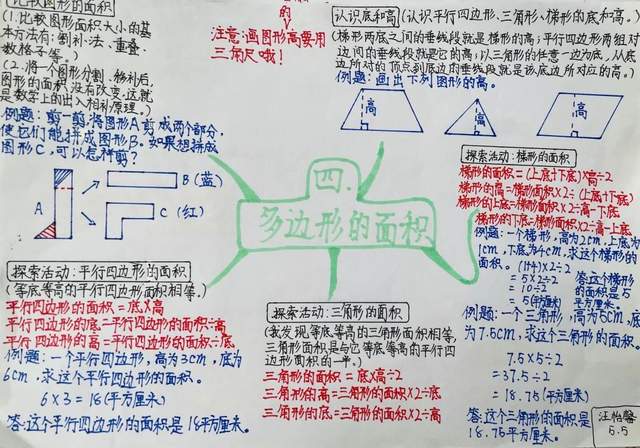 比较图形的面积
(1.比较图形面积大小的基
本方法有:割补法、重叠、
数格子等。)
(2.将一个图形分割、移补后,
图形的面积没有改变,这就
是数学上的出入相补原理。)
例题:剪一剪,将图形A剪成两个部分,
使它们能拼成图形B。如果想拼成
图形C,可以怎样剪?
A
B(蓝)
C(红)
的
注意:画图形高要用
三角尺哦!
认识底和高(认识平行四边形、三角形、梯形的底和高。)
(梯形两底之间的垂线段就是梯形的高;平行四边形两组对
边间的垂线段就是它的高;以三角形的任意一边为底,从底
边所对的顶点到底边的垂线段就是该底边所对应的高。)
例题:画出下列图形的高。
高
高
高
四.
多边形的面积
探索活动:梯形的面积
梯形的面积=(上底+下底)×高÷2
梯形的高=梯形面积×2÷(上底+下底)
梯形的上底=梯形面积×2÷高-下底
梯形的下底=梯形面积×2÷高-上底
例题:一个梯形,高为2cm,上底为
1cm,下底为4cm,求这个梯形的
面积。
(1+4)×2÷2
=5×2÷2
=10÷2
=5(平方厘米)
答:这个梯形
的面积是5
平方厘米。
例题:一个三角形,高为5cm,底
为7.5cm,求这个三角形的面积。
7.5×5÷2
=37.5÷2
=18.75(平方厘米)
答:这个三角形的面积是
18.75平方厘米。
探索活动:平行四边形的面积
(等底等高的平行四边形面积相等。)
平行四边形的面积=底×高
平行四边形的底=平行四边形的面积÷高
平行四边形的高=平行四边形的面积÷底
例题:一个平行四边形,高为3cm,底为
6cm,求这个平行四边形的面积。
6×3=18(平方厘米)
答:这个平行四边形的面积是18平方厘米。
探索活动:三角形的面积
(我发现等底等高的三角形面积相等,
三角形面积是与它等底等高的平行四
边形面积的一半。)
三角形的面积=底×高÷2
三角形的高=三角形的面积×2÷底
三角形的底=三角形的面积×2÷高
汪怡馨
5.5